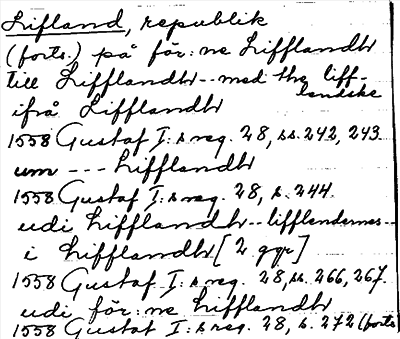 Lifland, republik
(forts.) på för:ne Lifflandh
till Lifflandh -- med the liff-
ländske
ifrå Lifflandh
1558 Gustaf I:s reg. 28, ss. 242, 243.
um --- Lifflandh
1558 Gustaf I:s reg. 28, s. 244.
udi Lifflandh -- lifflendernes --
i Lifflandh [2 ggr]
1558 Gustaf I:s reg. 28, ss. 266, 267.
udi för:ne Lifflandh
1558 Gustaf I:s reg. 28, s. 272 (forts